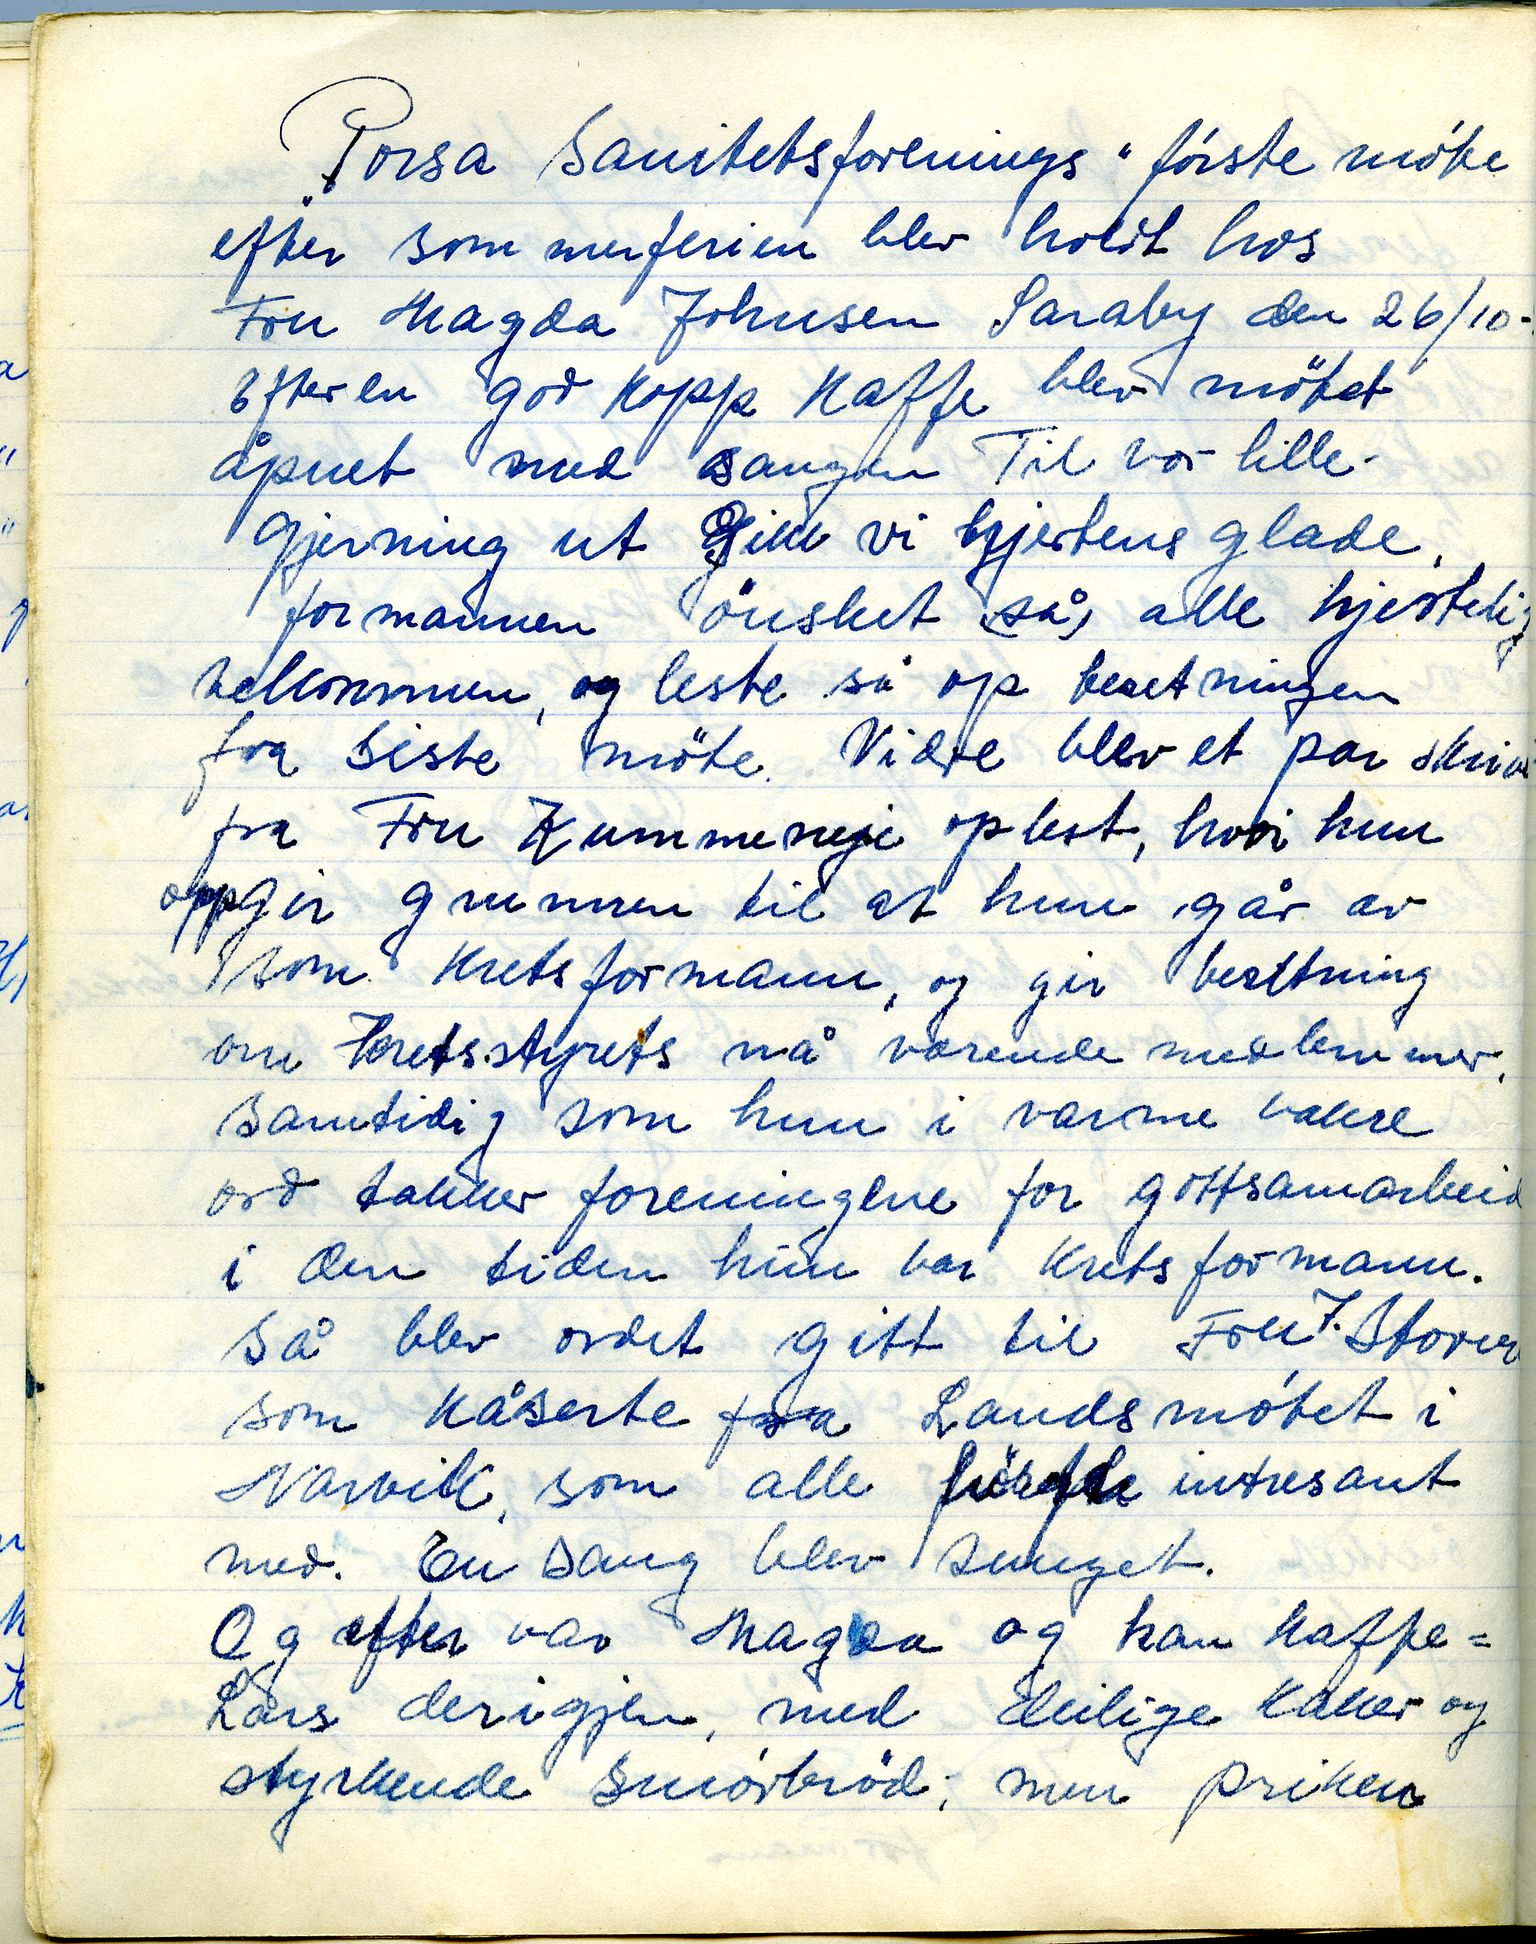 „Porsa Sanitetsforenings" første møte
efter sommerferien blev holdt hos
Fru Magda Johnsen Saraby den 26/10-
Efter en god kopp kaffe blev møtet
åpnet med sangen Til vor lille
Gjerning ut Gikk vi hjertens glade,
formannen ønsket så, alle hjertelig
velkommen, og leste så op beretningen
fra siste møte. Videre blev et par skriv
fra Fru Kummeneje oplest, hvori hun
oppgir grunnen til at hun går av
som Kretsformann, og gir beretning
om Kretsstyrets nå værende medlemmer,
samtidig som hun i varme vakre
ord takker foreningene for gott samarbeid
i den tiden hun var Kretsformann.
Så blev ordet gitt til Fru J.
som kåserte fra Landsmøtet i
Narvik, som alle intresant
med. En sang blev sunget.
Og efter var Magda og han Kaffe=
Lars der igjen, med deilige kaker og
styrkende smørbrød; men prikken